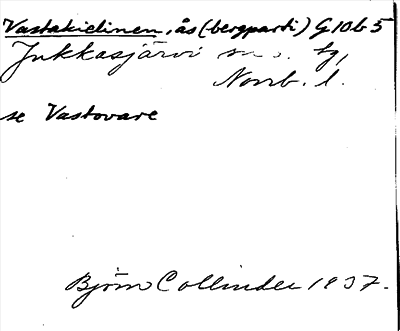 Vastakielinen, ås (bergparti) G10b5
Jukkasjärvi sn. tg,
Norrb. l.
se Vastovare
Björn Collinder 1937.